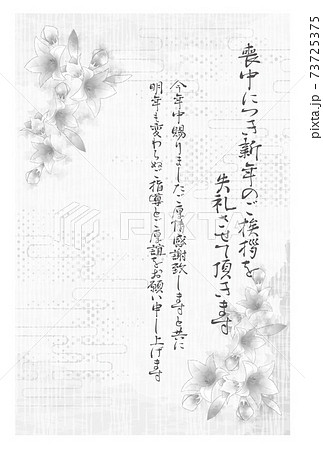 喪中につき新年のご挨拶を
失礼させて頂きます
今年中賜りましたご厚情感謝致しますと共に
明年も変わらぬご指導とご厚誼をお願い申し上げます
PIXTA
pixta.jp - 73725375